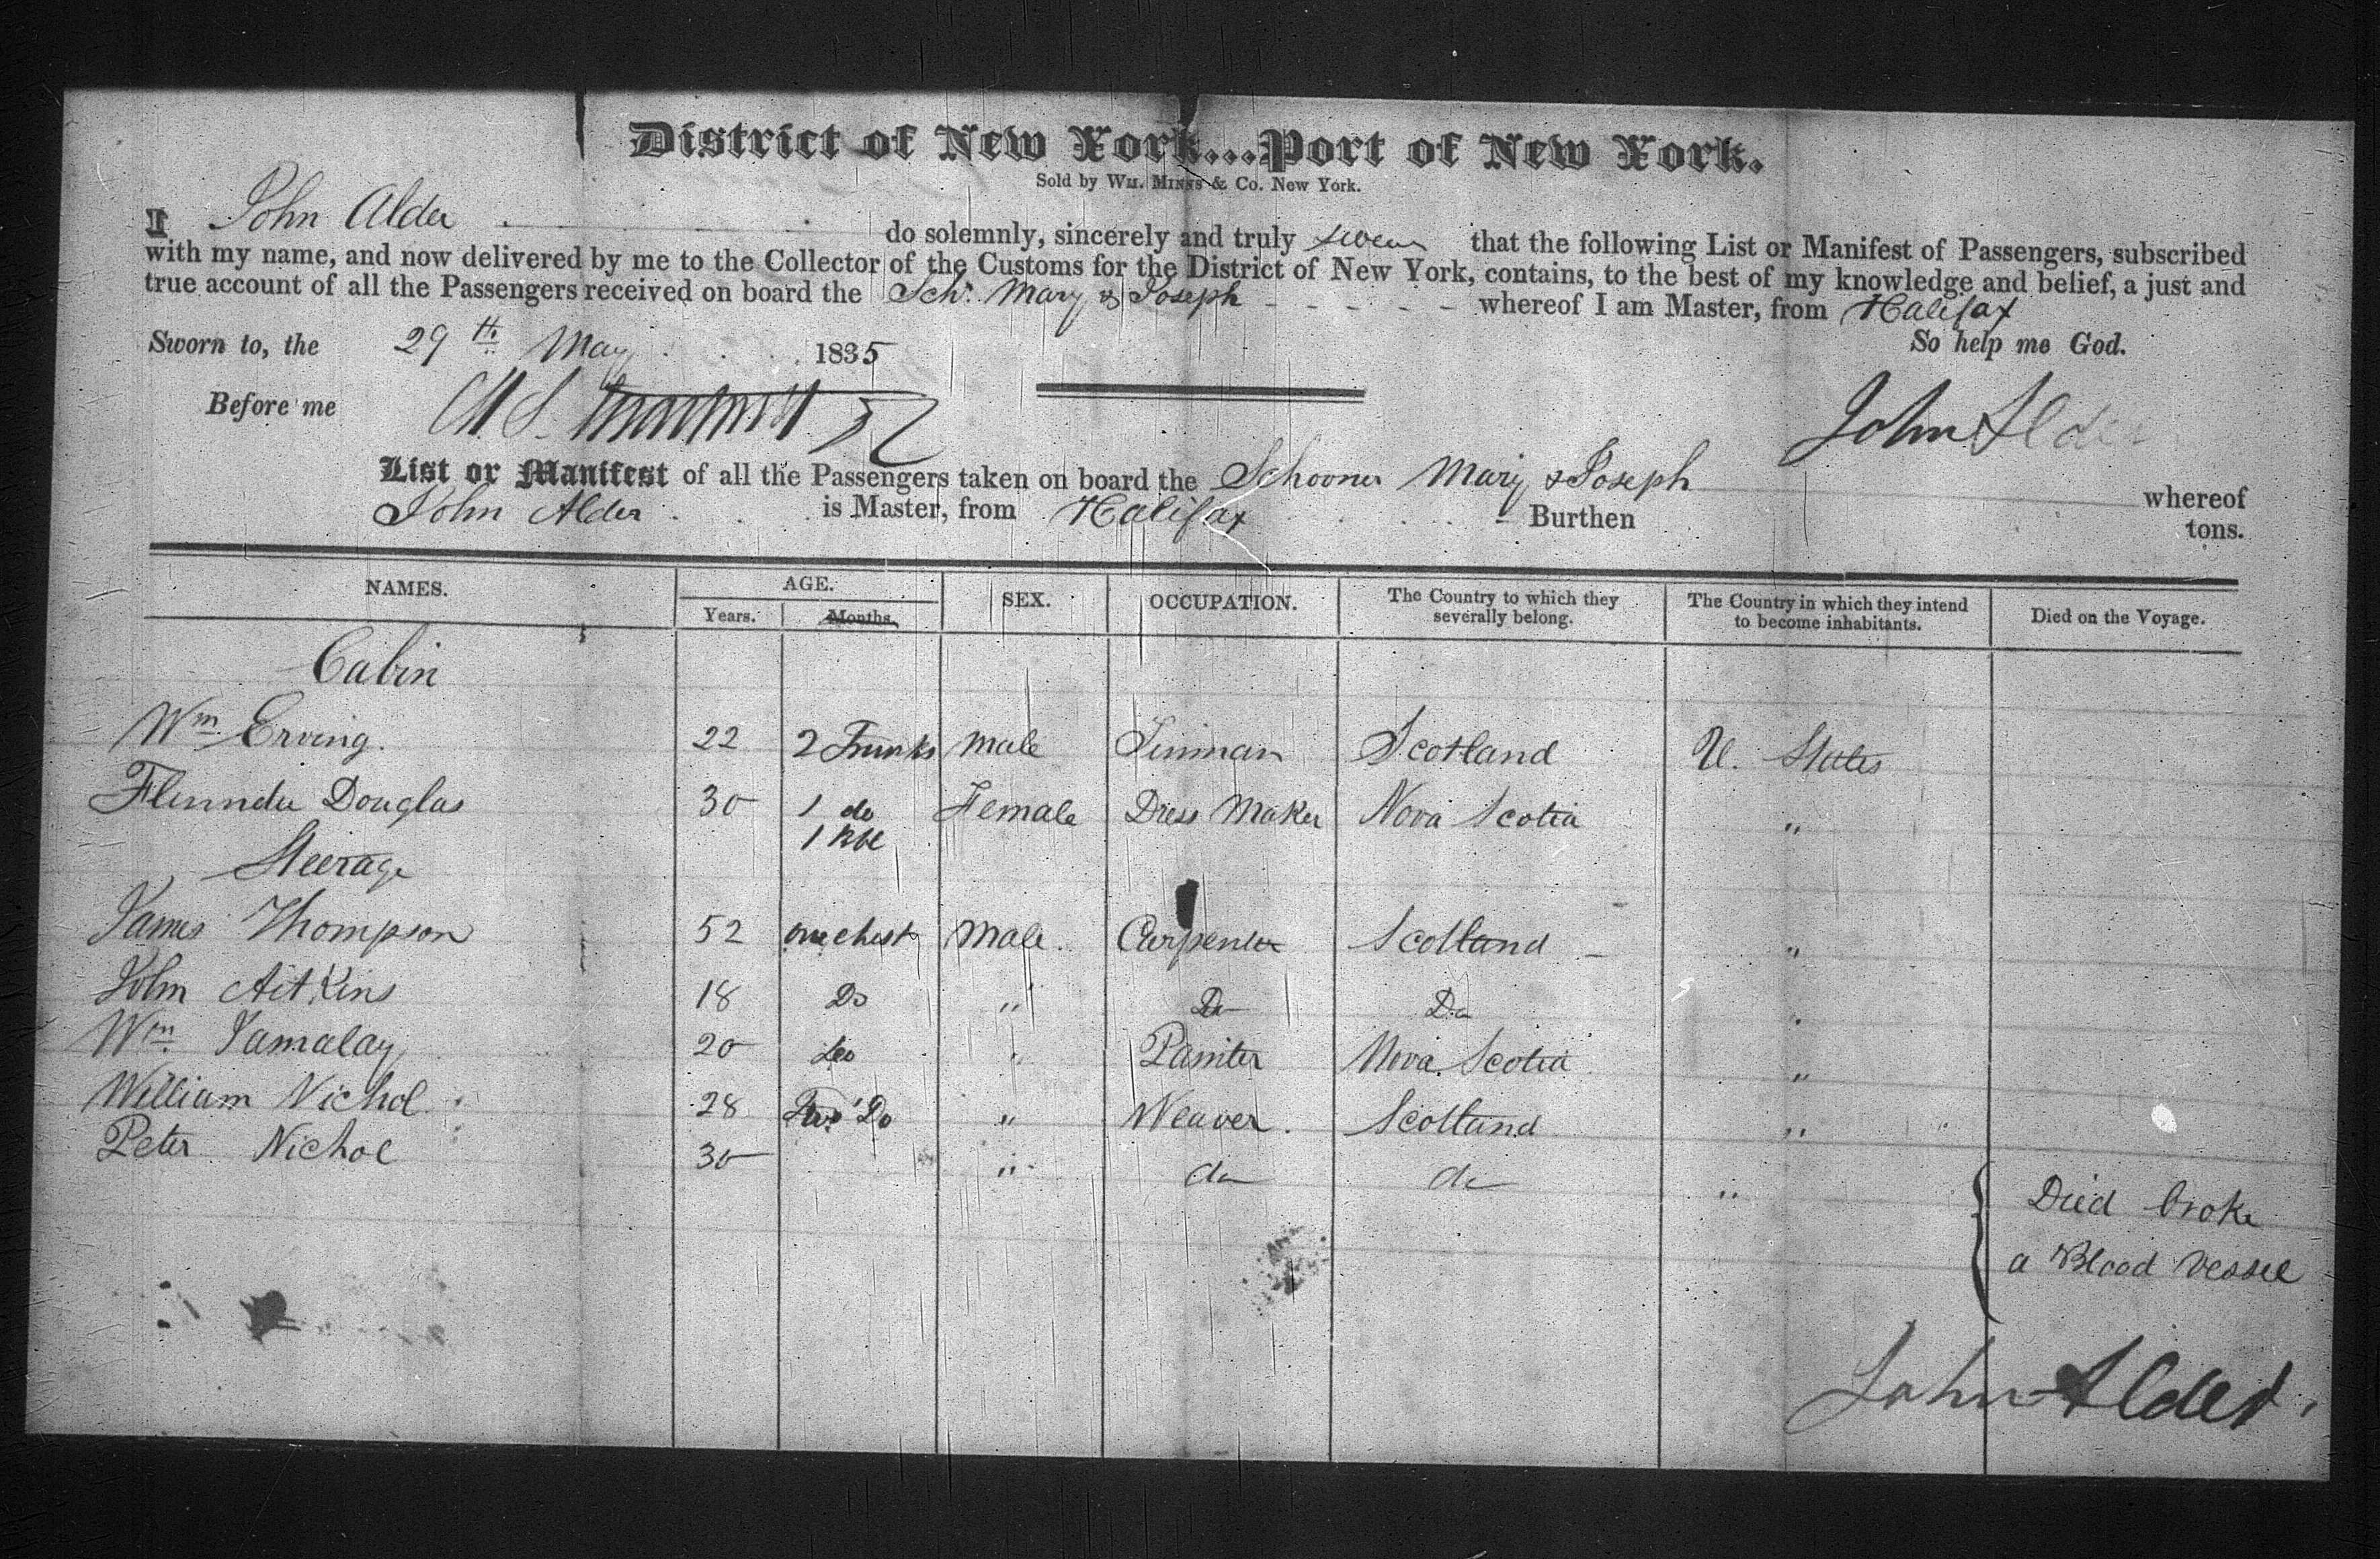 District of New York...Port of New York.
Sold by Wm. Minns & Co. New York.
I John Alder do solemnly, sincerely and truly swear that the following List or Manifest of Passengers, subscribed
with my name, and now delivered by me to the Collector of the Customs for the District of New York, contains, to the best of my knowledge and belief, a just and
true account of all the Passengers received on board the Schr. Mary & Joseph - - - - - whereof I am Master, from Halifax
Sworn to, the 29th May 1835 So help me God.
Before me John Alder
List or Manifest of all the Passengers taken on board the Schooner Mary & Joseph whereof
John Alder is Master, from Halifax Burthen tons.
NAMES. AGE. SEX. OCCUPATION. The Country to which they severally belong. The Country in which they intend to become inhabitants. Died on the Voyage.
Years. Months.
Cabin
Wm Erving. 22 2 Trunks Male Tinman Scotland U. States
Douglas 30 1 do Female Dress Maker Nova Scotia "
1 Bbl
Steerage
James Thompson 52 one chest Male Carpenter Scotland "
John Aitkins 18 Do " Do Do "
Wm 20 do " Painter Nova Scotia "
William Nichol 28 Two Do " Weaver Scotland "
Peter Nichol 30 " do do " Died broke
a Blood vessel
John Alder